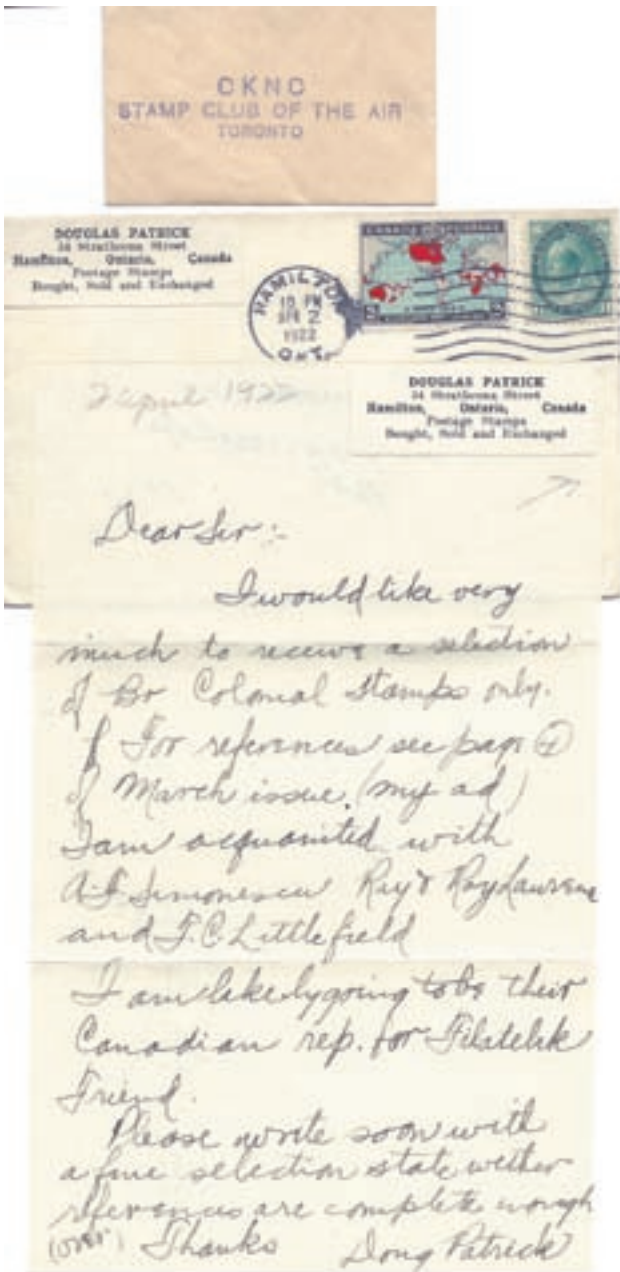 CKNC
STAMP CLUB OF THE AIR
TORONTO
DOUGLAS PATRICK
34 Strathcona Street
Hamilton, Ontario, Canada
Postage Stamps
Bought, Sold and Exchanged
HAMILTON
10 PM
APR 2
1922
ONT.
CANADA POSTAGE
2 April 1922
DOUGLAS PATRICK
34 Strathcona Street
Hamilton, Ontario, Canada
Postage Stamps
Bought, Sold and Exchanged
Dear Sir :-
I would like very
much to receive a selection
of Br Colonial Stamps only.
For references see page
of March issue. (my ad)
I am acquainted with
A.F. Simonescu Ray & Roy Lawrence
and F.C. Littlefield
I am likely going to be their
Canadian rep. for Filatelik
Friend.
Please write soon with
a fine selection state wether
references are complete enough
(over) Thanks Doug Patrick